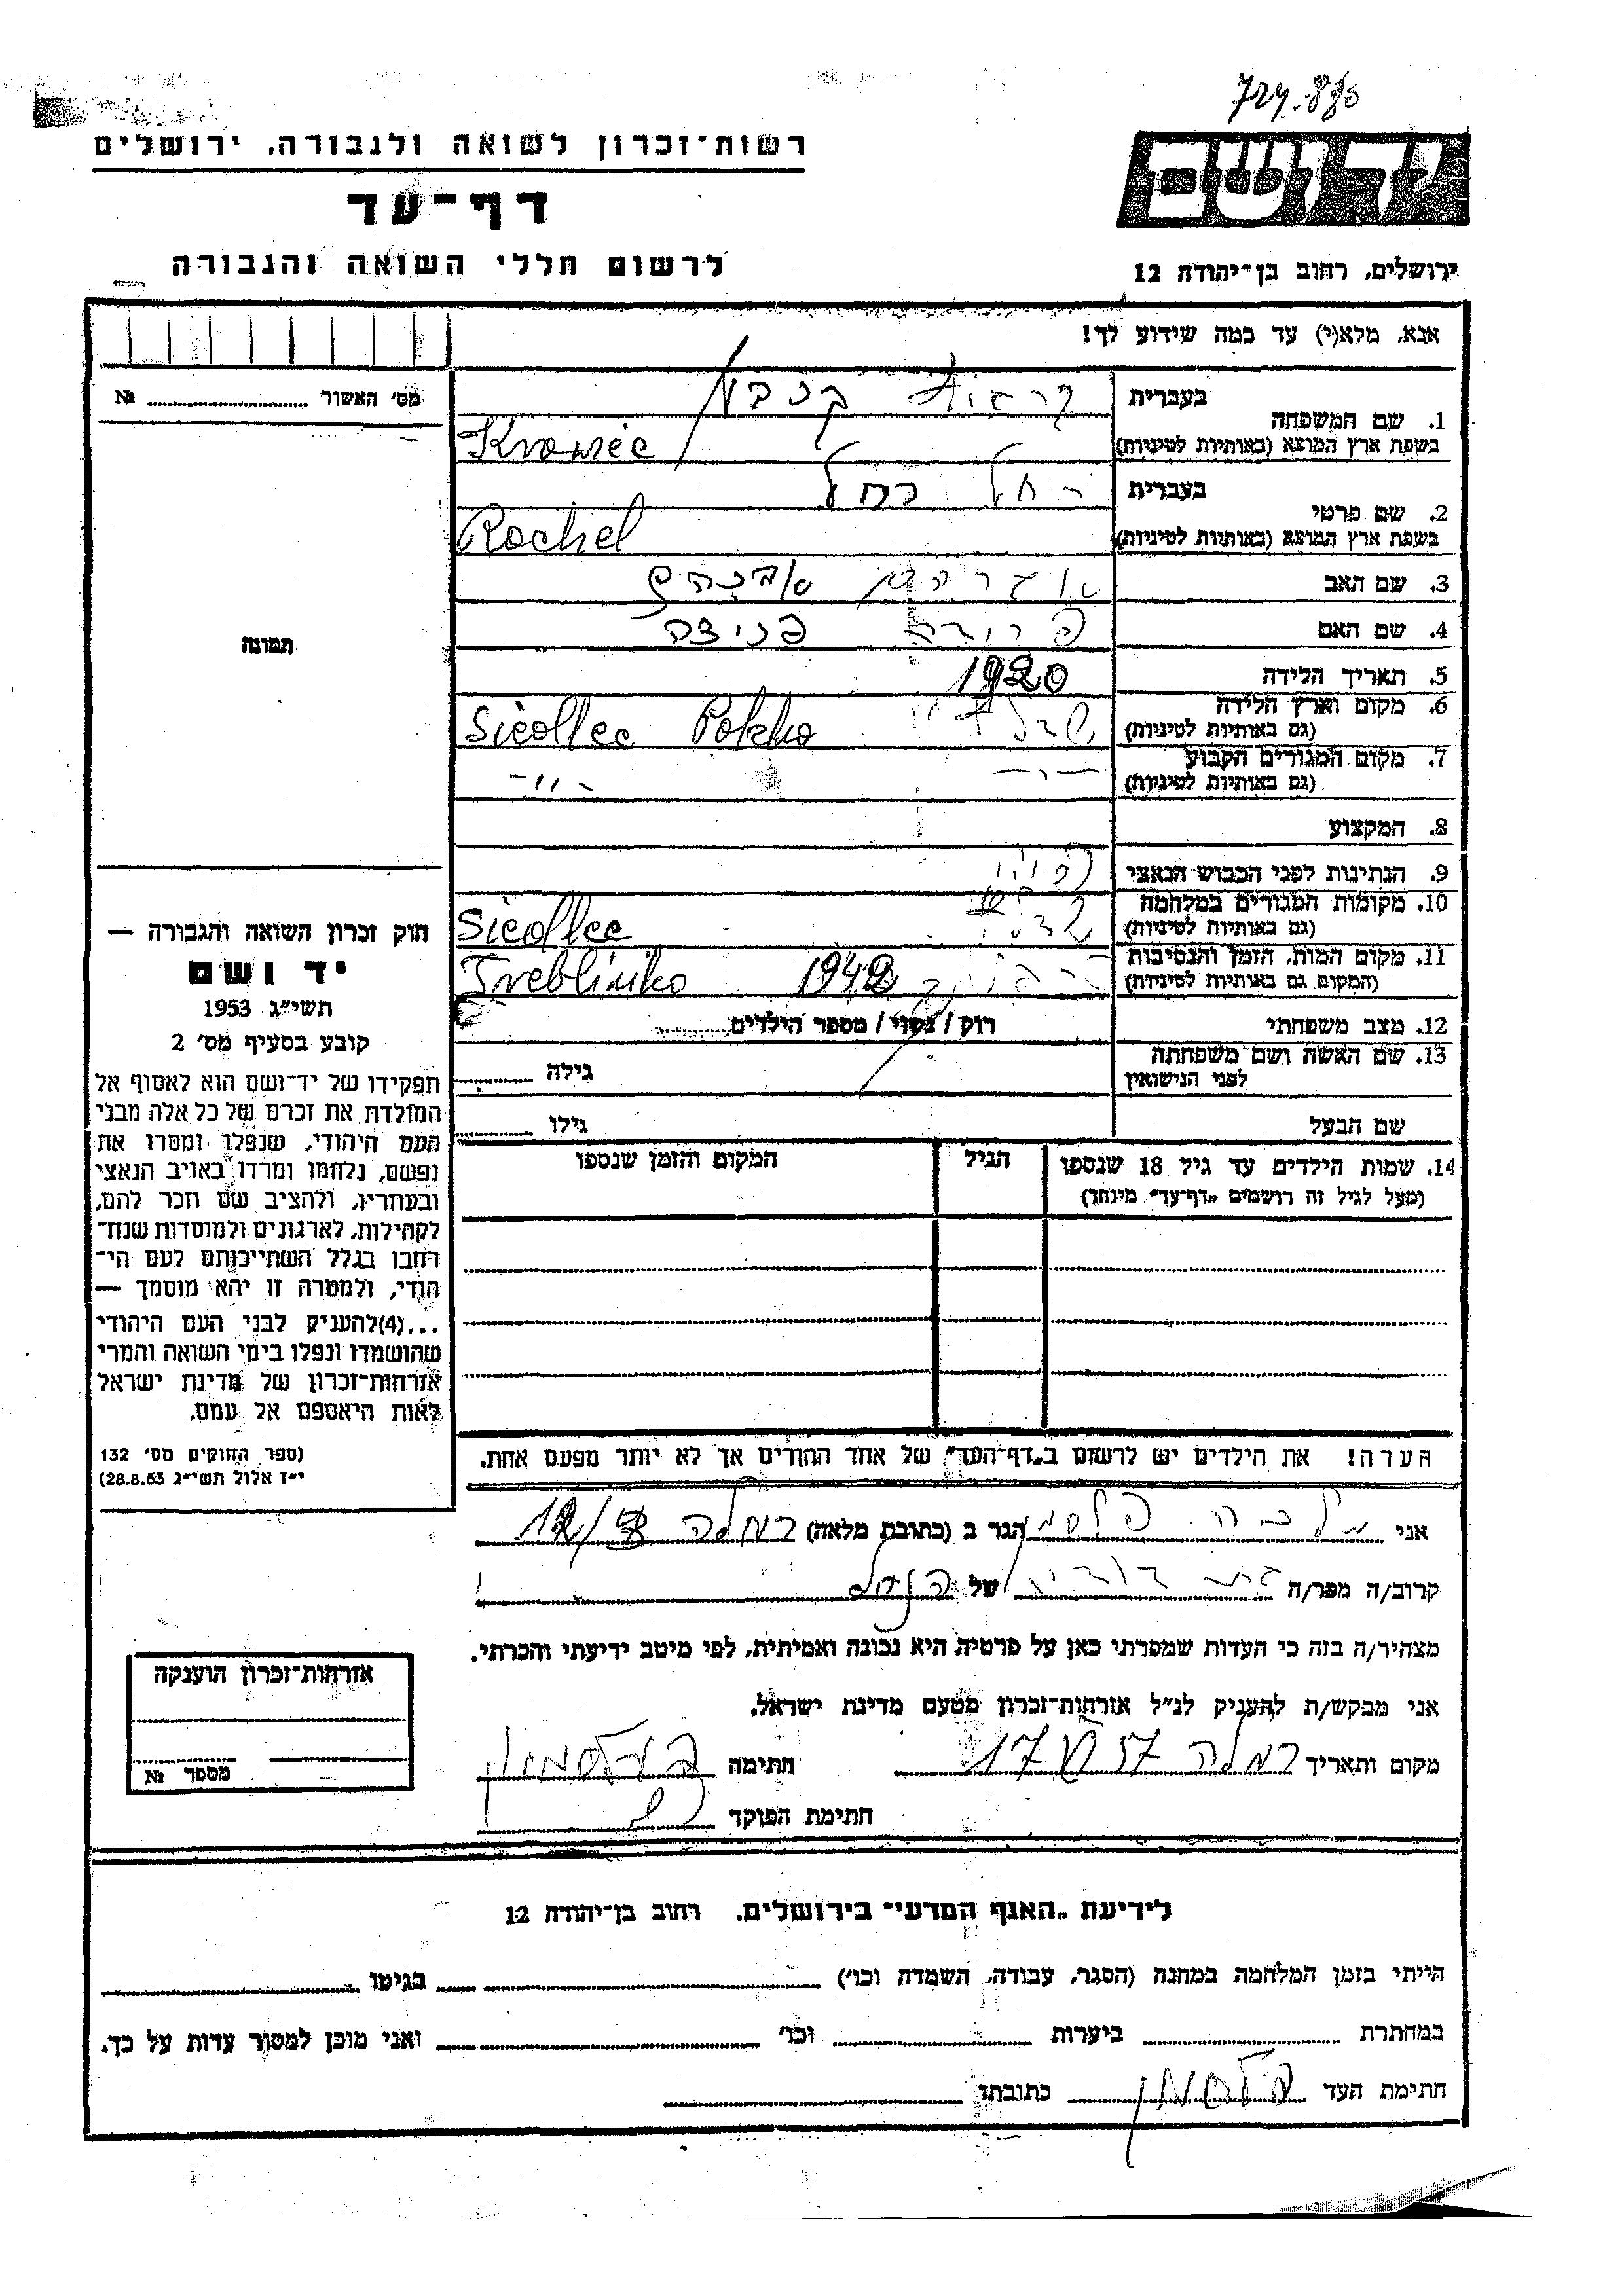 724.880
רשות־זכרון לשואה ולגבורה, ירושלים
יד ושם
דף־עד
לרשום חללי השואה והגבורה
ירושלים, רחוב בן־יהודה 12
אנא, מלא(י) עד כמה שידוע לך!
מס׳ האשור № 
בעברית
1. שם המשפחה
בשפת ארץ המוצא (באותיות לטיניות) Krawiec
בעברית רחל רחל
2. שם פרטי
בשפת ארץ המוצא (באותיות לטיניות) Rachel
3. שם האב אברהם אברהם
4. שם האם
5. תאריך הלידה 1920
6. מקום וארץ הלידה Siedlec Polska
(גם באותיות לטיניות)
7. מקום המגורים הקבוע -״-
(גם באותיות לטיניות)
8. המקצוע
9. הנתינות לפני הכבוש הנאצי
10. מקומות המגורים במלחמה Siedlec
(גם באותיות לטיניות)
11. מקום המות, הזמן והנסיבות 1942 Treblinka
(המקום גם באותיות לטיניות)
12. מצב משפחתי רוק / נשוי / מספר הילדים
13. שם האשה ושם משפחתה גילה
לפני הנישואין
שם הבעל גילו
14. שמות הילדים עד גיל 18 שנספו הגיל המקום והזמן שנספו
(מעל לגיל זה רושמים „דף־עד״ מיוחד)
הערה! את הילדים יש לרשום ב„דף־העד״ של אחד ההורים אך לא יותר מפעם אחת.
תמונה
חוק זכרון השואה והגבורה —
יד ושם
תשי״ג 1953
קובע בסעיף מס׳ 2
תפקידו של יד־ושם הוא לאסוף אל
המולדת את זכרם של כל אלה מבני
העם היהודי, שנפלו ומסרו את
נפשם, נלחמו ומרדו באויב הנאצי
ובעוזריו, ולהציב שם וזכר להם,
לקהילות, לארגונים ולמוסדות שנח־
רבו בגלל השתייכותם לעם הי־
הודי, ולמטרה זו יהא מוסמך —
...(4)להעניק לבני העם היהודי
שהושמדו ונפלו בימי השואה והמרי
אזרחות־זכרון של מדינת ישראל
לאות היאספם אל עמם.
(ספר החוקים מס׳ 132
י״ז אלול תשי״ג 28.8.53)
אני הגר ב (כתובת מלאה) רמלה
קרוב/ה מכר/ה של
מצהיר/ה בזה כי העדות שמסרתי כאן על פרטיה היא נכונה ואמיתית, לפי מיטב ידיעתי והכרתי.
אני מבקש/ת להעניק לנ״ל אזרחות־זכרון מטעם מדינת ישראל.
מקום ותאריך רמלה חתימה
חתימת הפוקד
אזרחות־זכרון הוענקה
מספר №
לידיעת „האגף המדעי״ בירושלים, רחוב בן־יהודה 12
הייתי בזמן המלחמה במחנה (הסגר, עבודה, השמדה וכו׳) בגיטו
במחתרת ביערות וכו׳ ואני מוכן למסור עדות על כך.
חתימת העד כתובתו